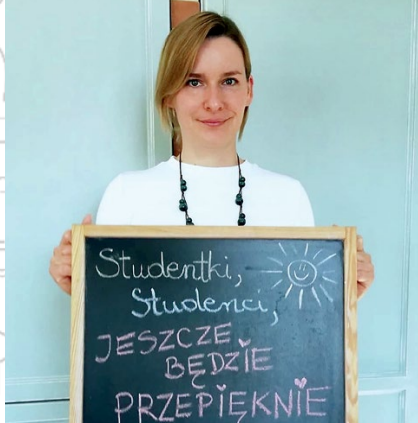 Studentki,
Studenci,
JESZCZE
BĘDZIE
PRZEPIĘKNIE